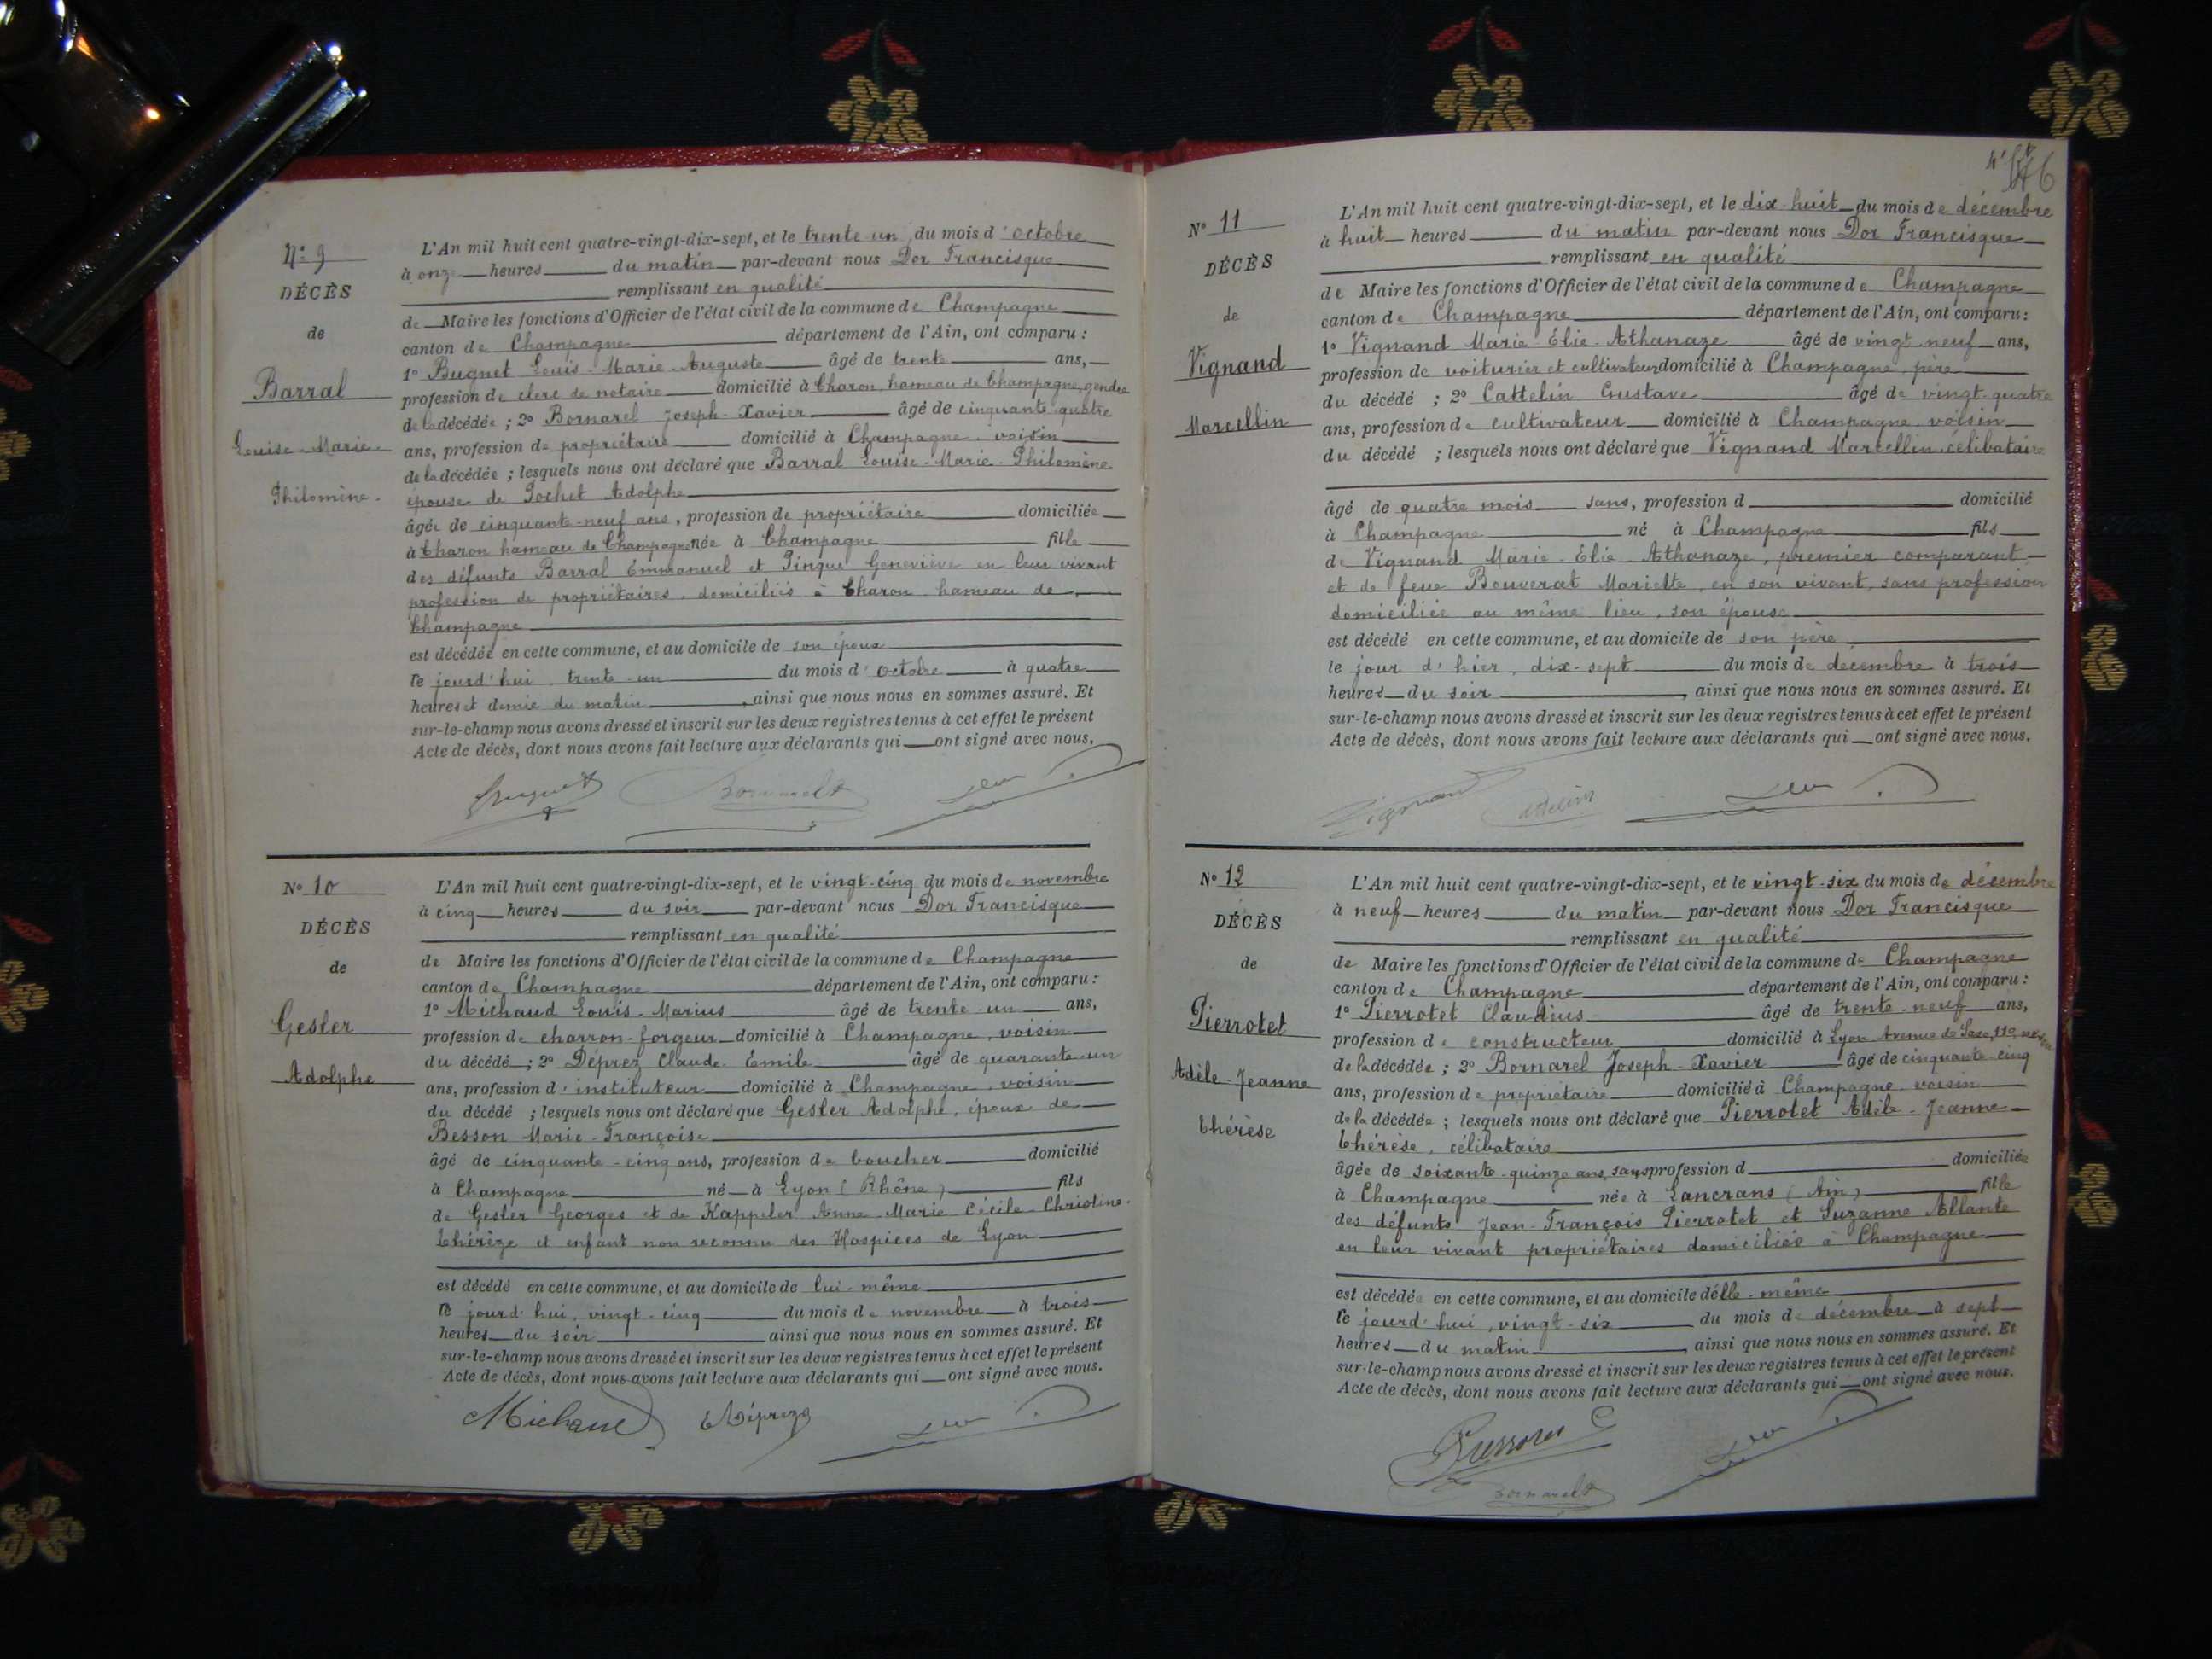 N° 9
DÉCÈS
de
Barral
Louise-Marie-
Philomène.
L'An mil huit cent quatre-vingt-dix-sept, et le trente un du mois d'octobre
à onze heures du matin par-devant nous Dor Francisque
remplissant en qualité
de Maire les fonctions d'Officier de l'état civil de la commune de Champagne
canton de Champagne département de l'Ain, ont comparu :
1° Bugnet Louis-Marie-Auguste âgé de trente ans,
profession de clerc de notaire domicilié à Charon hameau de Champagne, gendre
de la décédée ; 2° Bornarel Joseph-Xavier âgé de cinquante-quatre
ans, profession de propriétaire domicilié à Champagne, voisin
de la décédée ; lesquels nous ont déclaré que Barral Louise-Marie-Philomène
épouse de Pochet Adolphe
âgée de cinquante-neuf ans, profession de propriétaire domiciliée
à Charon hameau de Champagne née à Champagne fille
des défunts Barral Emmanuel et Pingue Geneviève en leur vivant
profession de propriétaires, domiciliés à Charon, hameau de
Champagne
est décédée en cette commune, et au domicile de son époux
le jourd'hui trente-un du mois d'octobre à quatre
heures et demie du matin, ainsi que nous nous en sommes assuré. Et
sur-le-champ nous avons dressé et inscrit sur les deux registres tenus à cet effet le présent
Acte de décès, dont nous avons fait lecture aux déclarants qui ont signé avec nous.
Bugnet Bornarel Dor
N° 10
DÉCÈS
de
Gesler
Adolphe
L'An mil huit cent quatre-vingt-dix-sept, et le vingt-cinq du mois de novembre
à cinq heures du soir par-devant nous Dor Francisque
remplissant en qualité
de Maire les fonctions d'Officier de l'état civil de la commune de Champagne
canton de Champagne département de l'Ain, ont comparu :
1° Michaud Louis-Marius âgé de trente-un ans,
profession de charron-forgeur domicilié à Champagne, voisin
du décédé ; 2° Déprez Claude Emile âgé de quarante-un
ans, profession d'instituteur domicilié à Champagne, voisin
du décédé ; lesquels nous ont déclaré que Gesler Adolphe, époux de
Besson Marie-Françoise
âgé de cinquante-cinq ans, profession de boucher domicilié
à Champagne né à Lyon (Rhône) fils
de Gesler Georges et de Kappeler Anne-Marie Cécile-Christine-
Thérèze et enfant non reconnu des Hospices de Lyon
est décédé en cette commune, et au domicile de lui-même
le jourd'hui, vingt-cinq du mois de novembre à trois
heures du soir ainsi que nous nous en sommes assuré. Et
sur-le-champ nous avons dressé et inscrit sur les deux registres tenus à cet effet le présent
Acte de décès, dont nous avons fait lecture aux déclarants qui ont signé avec nous.
Michaud Déprez Dor
N° 11
DÉCÈS
de
Vignand
Marcellin
L'An mil huit cent quatre-vingt-dix-sept, et le dix-huit du mois de décembre
à huit heures du matin par-devant nous Dor Francisque
remplissant en qualité
de Maire les fonctions d'Officier de l'état civil de la commune de Champagne
canton de Champagne département de l'Ain, ont comparu :
1° Vignand Marie-Élie-Athanaze âgé de vingt-neuf ans,
profession de voiturier et cultivateur domicilié à Champagne, père
du décédé ; 2° Cattelin Gustave âgé de vingt-quatre
ans, profession de cultivateur domicilié à Champagne, voisin
du décédé ; lesquels nous ont déclaré que Vignand Marcellin, célibataire
âgé de quatre mois sans, profession d domicilié
à Champagne né à Champagne fils
de Vignand Marie-Elie-Athanaze, premier comparant
et de feue Bouverat Mariette, en son vivant, sans profession
domiciliée au même lieu, son épouse
est décédé en cette commune, et au domicile de son père
le jour d'hier, dix-sept du mois de décembre à trois
heures du soir, ainsi que nous nous en sommes assuré. Et
sur-le-champ nous avons dressé et inscrit sur les deux registres tenus à cet effet le présent
Acte de décès, dont nous avons fait lecture aux déclarants qui ont signé avec nous.
Vignand Cattelin Dor
N° 12
DÉCÈS
de
Pierrotet
Adèle-Jeanne
Thérèse
L'An mil huit cent quatre-vingt-dix-sept, et le vingt-six du mois de décembre
à neuf heures du matin par-devant nous Dor Francisque
remplissant en qualité
de Maire les fonctions d'Officier de l'état civil de la commune de Champagne
canton de Champagne département de l'Ain, ont comparu :
1° Pierrotet Claudius âgé de trente-neuf ans,
profession de constructeur domicilié à Lyon Avenue de Saxe, 110, neveu
de la décédée ; 2° Bornarel Joseph-Xavier âgé de cinquante-cinq
ans, profession de propriétaire domicilié à Champagne, voisin
de la décédée ; lesquels nous ont déclaré que Pierrotet Adèle-Jeanne
Thérèse, célibataire
âgée de soixante-quinze ans, sans profession d domiciliée
à Champagne née à Lancrans (Ain) fille
des défunts Jean-François Pierrotet et Suzanne Allante
en leur vivant propriétaires domiciliés à Champagne
est décédée en cette commune, et au domicile d'elle-même
le jourd'hui, vingt-six du mois de décembre à sept
heures du matin, ainsi que nous nous en sommes assuré. Et
sur-le-champ nous avons dressé et inscrit sur les deux registres tenus à cet effet le présent
Acte de décès, dont nous avons fait lecture aux déclarants qui ont signé avec nous.
Pierrotet C Dor
Bornarel